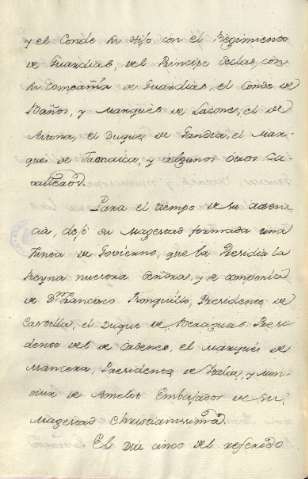 y el Conde su Hijo con el Regimiento
de Guardias, del Principe Sclas, con
la Compañia de Guardias, el Conde de
Baños, y Marques de Lacone, el de
Aitona, el Duque de Gandia, el Mar-
ques de Jamaica, y algunos otros Ca-
Para el tiempo de su ausen-
cia, dejó su Magestad formada una
Junta de Govierno, que la Presidia la
Reyna nuestra Señora, y se componia
de Dn. Francisco Ronquillo, Presidente de
Castilla, el Duque de Beraguas Presi-
dente del de Ordenes, el Marques de
Mancera, Presidente de Italia, y Mon-
siur de Amelot Embajador de Su
Magestad Christianissima.
El dia cinco del referido